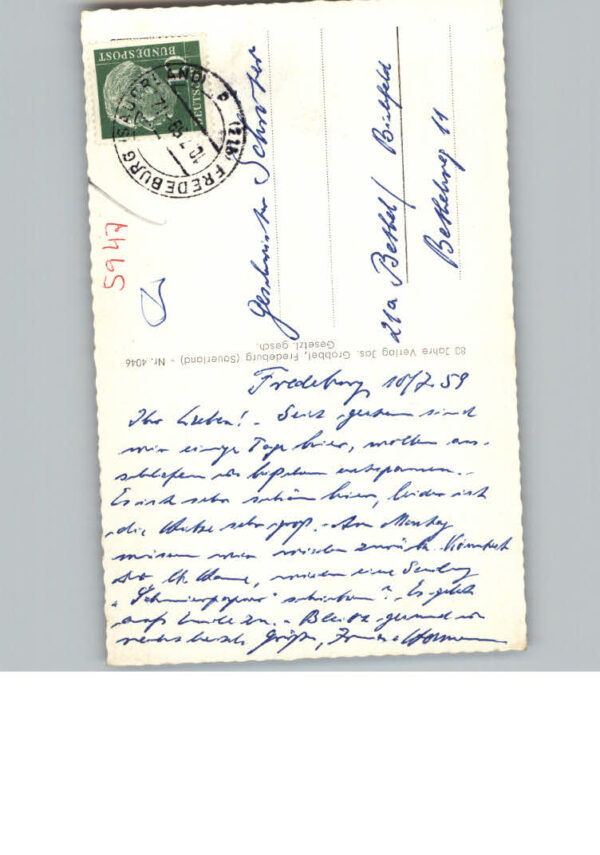 DEUTSCHE
BUNDESPOST
10
(21b) FREDEBURG (SAUERLAND)
5947
Geschwister Schröter
21a Bethel/Bielfeld
Bethelweg 11
80 Jahre Verlag Jos. Grobbel, Fredeburg (Sauerland) - Nr. 4046
Gesetzl. gesch.
Fredeburg, 10/7.59
Ihr Lieben! - Seit gestern sind
wir einige Tage hier, wollen aus-
schlafen u. bißchen entspannen. -
Es ist sehr schön hier, leider ist
die Hitze sehr groß. - Am Montag
müssen wir wieder zurück. Könntest
, wieder eine Sendung
"Schmierpapier" schicken? - Es geht
aufs Ende zu. - Bleibt gesund u.
recht herzl. Grüße,